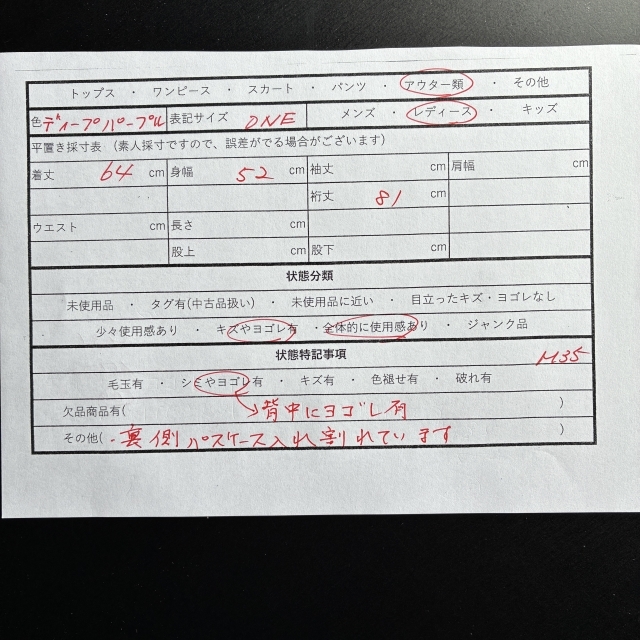 トップス ・ ワンピース ・ スカート ・ パンツ ・ アウター類 ・ その他
色 ディープパープル 表記サイズ ONE メンズ ・ レディース ・ キッズ
平置き採寸表 (素人採寸ですので、誤差がでる場合がございます)
着丈 64 cm 身幅 52 cm 袖丈 cm 肩幅 cm
裄丈 81
ウエスト cm 長さ cm
股上 cm 股下 cm
状態分類
未使用品 ・ タグ有(中古品扱い) ・ 未使用品に近い ・ 目立ったキズ・ヨゴレなし
少々使用感あり ・ キズやヨゴレ有 ・全体的に使用感あり ・ ジャンク品
状態特記事項 M35
毛玉有 ・ シミやヨゴレ有 ・ キズ有 ・ 色褪せ有 ・ 破れ有
欠品商品有( 背中にヨゴレ有 )
その他( ・裏側パスケース入れ割れています )